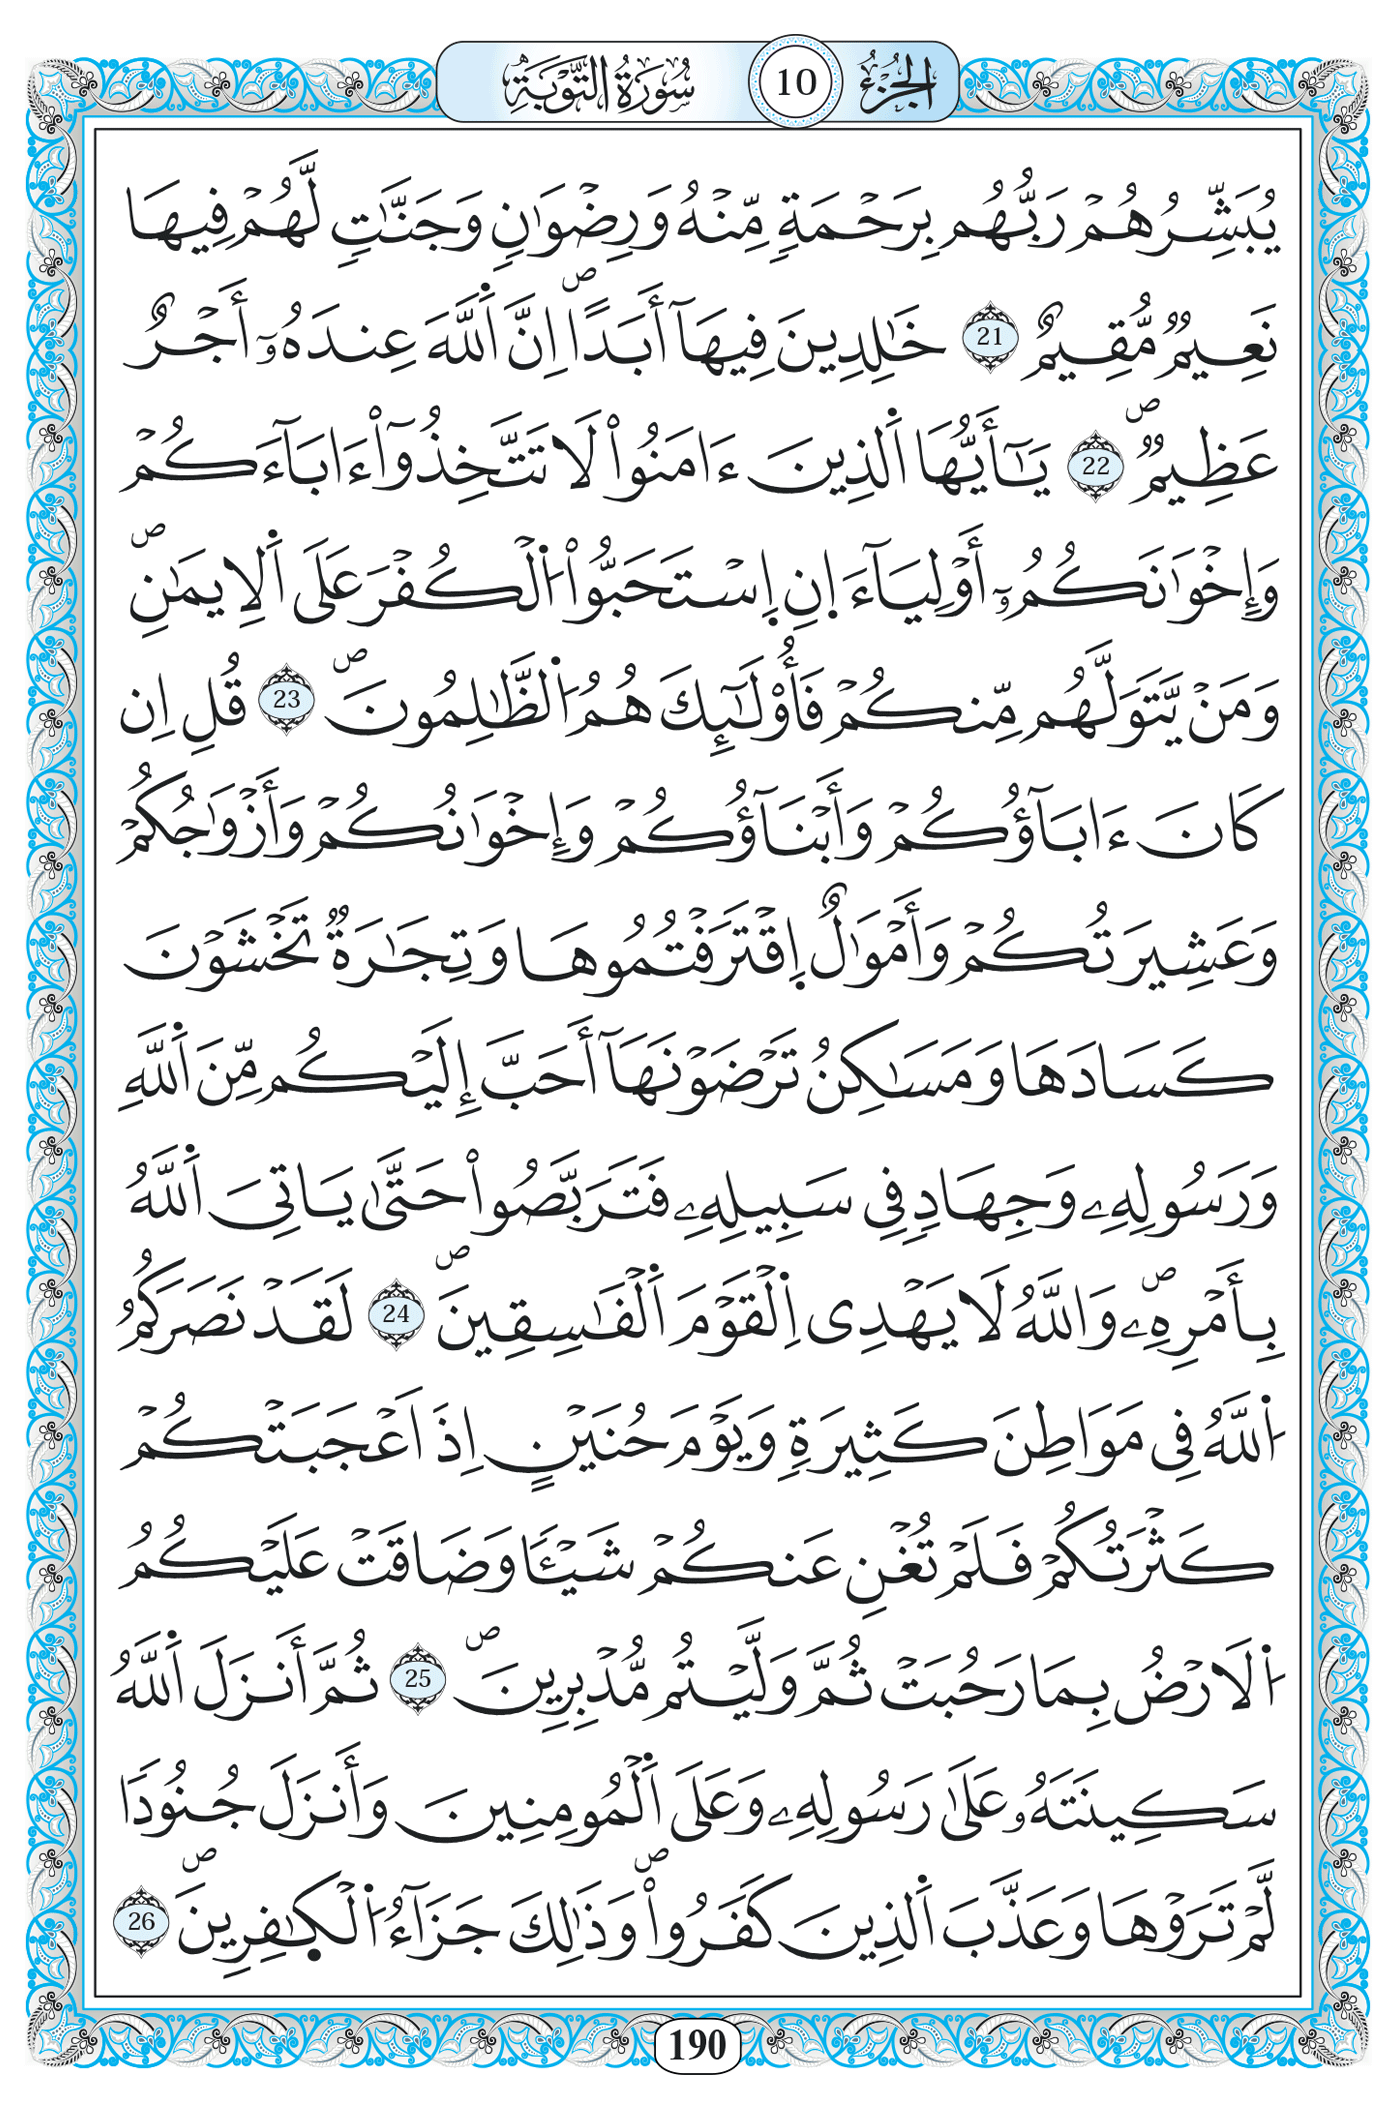 الجزء 10 سورة التوبة
يُبَشِّرُهُمْ رَبُّهُم بِرَحْمَةٍ مِّنْهُ وَرِضْوَٰنٍ وَجَنَّٰتٍ لَّهُمْ فِيهَا
نَعِيمٌ مُّقِيمٌ 21 خَٰلِدِينَ فِيهَآ أَبَدًاۖ اِنَّ اَ۬للَّهَ عِندَهُۥٓ أَجْرٌ
عَظِيمٌۖ 22 يَٰٓأَيُّهَا اَ۬لذِينَ ءَامَنُواْ لَا تَتَّخِذُوٓاْ ءَابَآءَكُمْ
وَإِخْوَٰنَكُمُۥٓ أَوْلِيَآءَ انِ اِ۪سْتَحَبُّواْ اُ۬لْكُفْرَ عَلَى اَ۬لِايمَٰنِۖ
وَمَنْ يَّتَوَلَّهُم مِّنكُمْ فَأُوْلَٰٓئِكَ هُمُ اُ۬لظَّٰلِمُونَۖ 23 قُلِ اِن
كَانَ ءَابَآؤُكُمْ وَأَبْنَآؤُكُمْ وَإِخْوَٰنُكُمْ وَأَزْوَٰجُكُمْ
وَعَشِيرَتُكُمْ وَأَمْوَٰلٌ اِ۪قْتَرَفْتُمُوهَا وَتِجَٰرَةٌ تَخْشَوْنَ
كَسَادَهَا وَمَسَٰكِنُ تَرْضَوْنَهَآ أَحَبَّ إِلَيْكُم مِّنَ اَ۬للَّهِ
وَرَسُولِهِۦ وَجِهَادٍ فِي سَبِيلِهِۦ فَتَرَبَّصُواْ حَتَّىٰ يَاتِىَ اَ۬للَّهُ
بِأَمْرِهِۦۖ وَاللَّهُ لَا يَهْدِى اِ۬لْقَوْمَ اَ۬لْفَٰسِقِينَۖ 24 لَقَدْ نَصَرَكُمُ
اُ۬للَّهُ فِي مَوَاطِنَ كَثِيرَةٍ وَيَوْمَ حُنَيْنٍ اِذَ اَعْجَبَتْكُمْ
كَثْرَتُكُمْ فَلَمْ تُغْنِ عَنكُمْ شَيْـٔاً وَضَاقَتْ عَلَيْكُمُ
اُ۬لَارْضُ بِمَا رَحُبَتْ ثُمَّ وَلَّيْتُم مُّدْبِرِينَۖ 25 ثُمَّ أَنزَلَ اَ۬للَّهُ
سَكِينَتَهُۥ عَلَىٰ رَسُولِهِۦ وَعَلَى اَ۬لْمُومِنِينَ وَأَنزَلَ جُنُودًا
لَّمْ تَرَوْهَا وَعَذَّبَ اَ۬لذِينَ كَفَرُواْۖ وَذَٰلِكَ جَزَآءُ اُ۬لْكٰ۪فِرِينَۖ 26
190